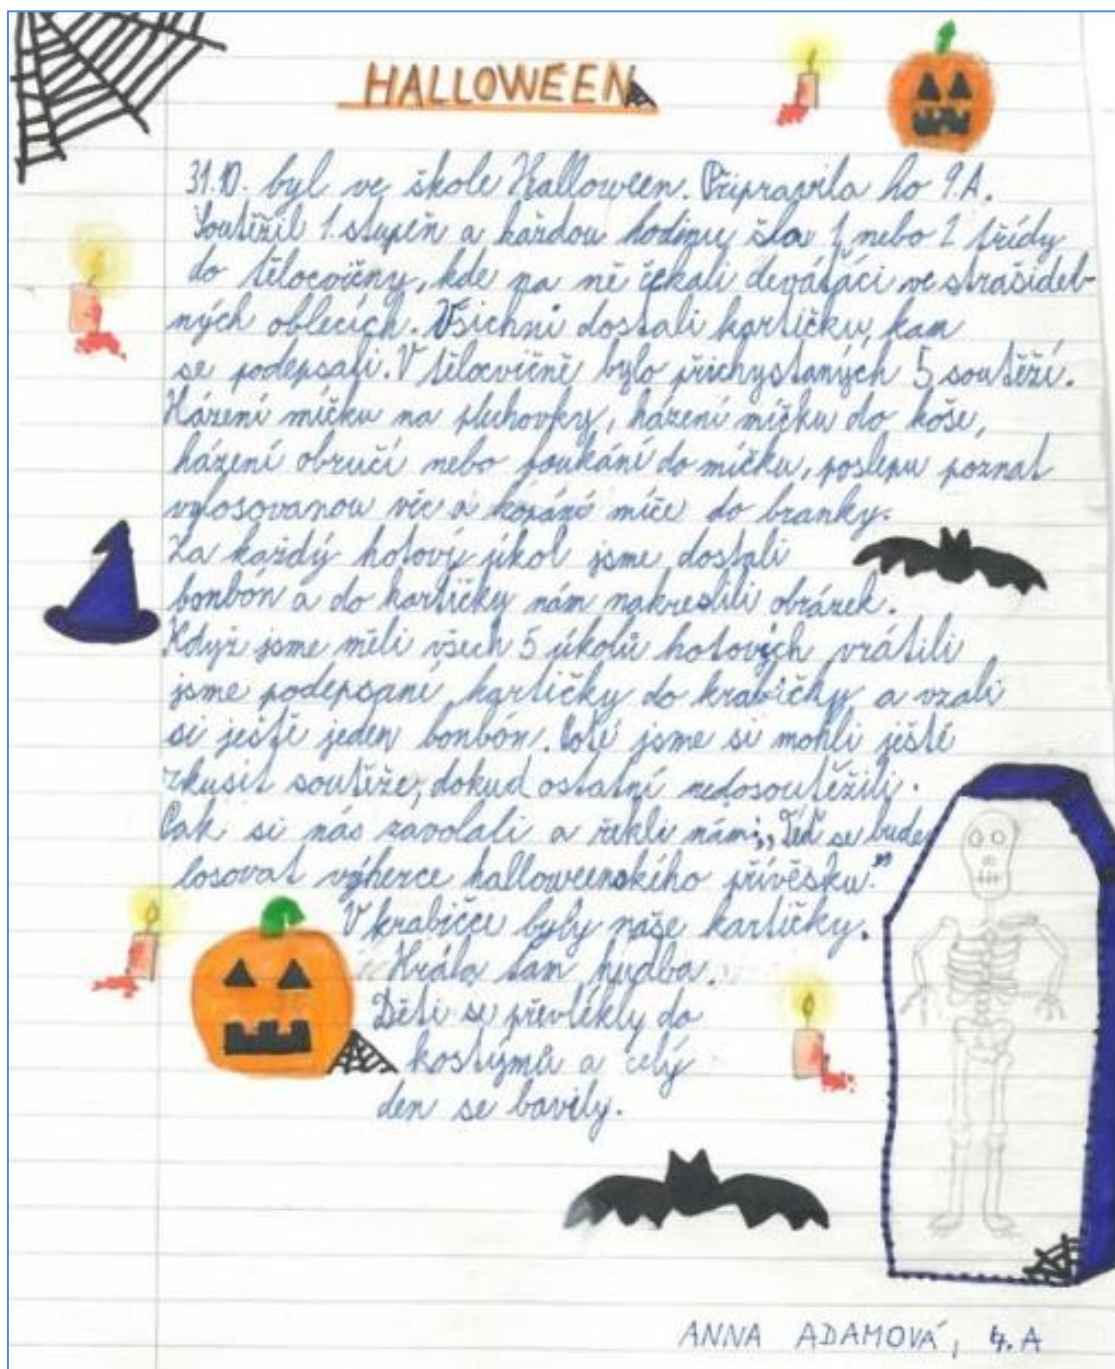 HALLOWEEN
31.10. byl ve škole Halloween. Připravila ho 9.A.
Soutěžil 1.stupeň a každou hodinu šla 1 nebo 2 třídy
do tělocvičny, kde na ně čekali deváťáci ve strašidel-
ných oblecích. Všichni dostali kartičku, kam
se podepsali. V tělocvičně bylo přichystaných 5 soutěží.
Házení míčku na plechovky, házení míčku do koše,
házení obručí nebo foukání do míčku, poslepu poznat
vylosovanou věc a kopání míče do branky.
Za každý hotový úkol jsme dostali
bonbón a do kartičky nám nakreslili obrázek.
Když jsme měli všech 5 úkolů hotových vrátili
jsme podepsané kartičky do krabičky a vzali
si ještě jeden bonbón. Poté jsme si mohli ještě
zkusit soutěže, dokud ostatní nedosoutěžili.
Pak si nás zavolali a řekli nám: „Teď se bude
losovat výherce halloweenského přívěsku."
V krabičce byly naše kartičky.
Hrála tam hudba.
Děti se převlékly do
kostýmů a celý
den se bavily.
ANNA ADAMOVÁ, 4.A